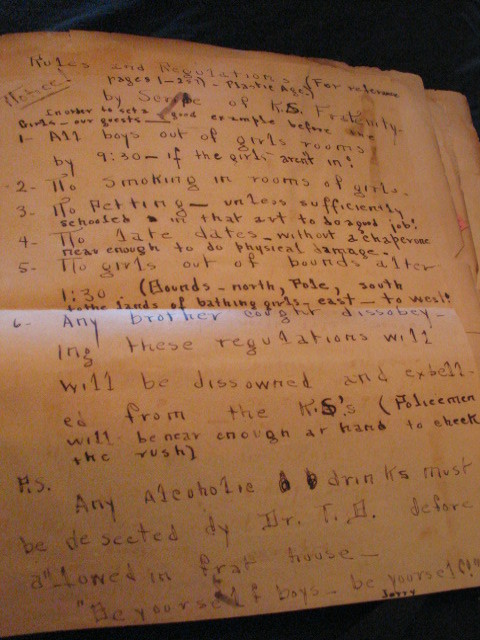 Rules and Regulations (For reference
Notice!
pages 1-257 - Plastic Age)
by Some of K.S. Fraternity-
In order to set a good example before the
Girls - our guests
1- All boys out of girls rooms
by 9:30 - if the girls aren't in!
2- No smoking in rooms of girls-
3- No Petting - unless sufficiently
schooled in that art to do a good job!
4- No late dates - without a chaperone
near enough to do physical damage.
5- No girls out of bounds after
1:30 (Bounds - north, Pole, south
to the lands of bathing girls - east - to west!
6- Any brother cought dissobey-
ing these regulations will
will be dissowned and expell-
ed from the K.S.'s (Policemen
will be near enough at hand to check
the rush)
P.S.
Any Alcoholic drinks must
be desected by Dr. T.D. defore
allowed in frat house -
"Be yourself boys - be yourself!"
Sorry